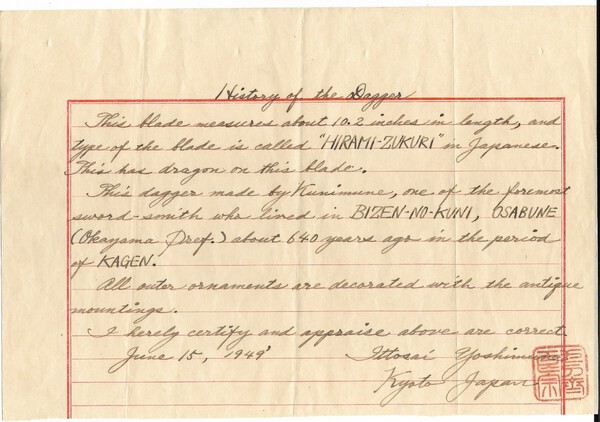 History of the Dagger
This blade measures about 10.2 inches in length, and
type of the blade is called "HIRAMI-ZUKURI" in Japanese.
This has dragon on this blade.
This dagger made by Kunimune, one of the foremost
sword-smith who lived in BIZEN-NO-KUNI, OSABUNE
(Okayama Pref.) about 640 years ago in the period
of KAGEN.
All outer ornaments are decorated with the antique
mountings.
I herely certify and appraise above are correct.
June 15, 1949 Ittosai Yoshimura
Kyoto Japan